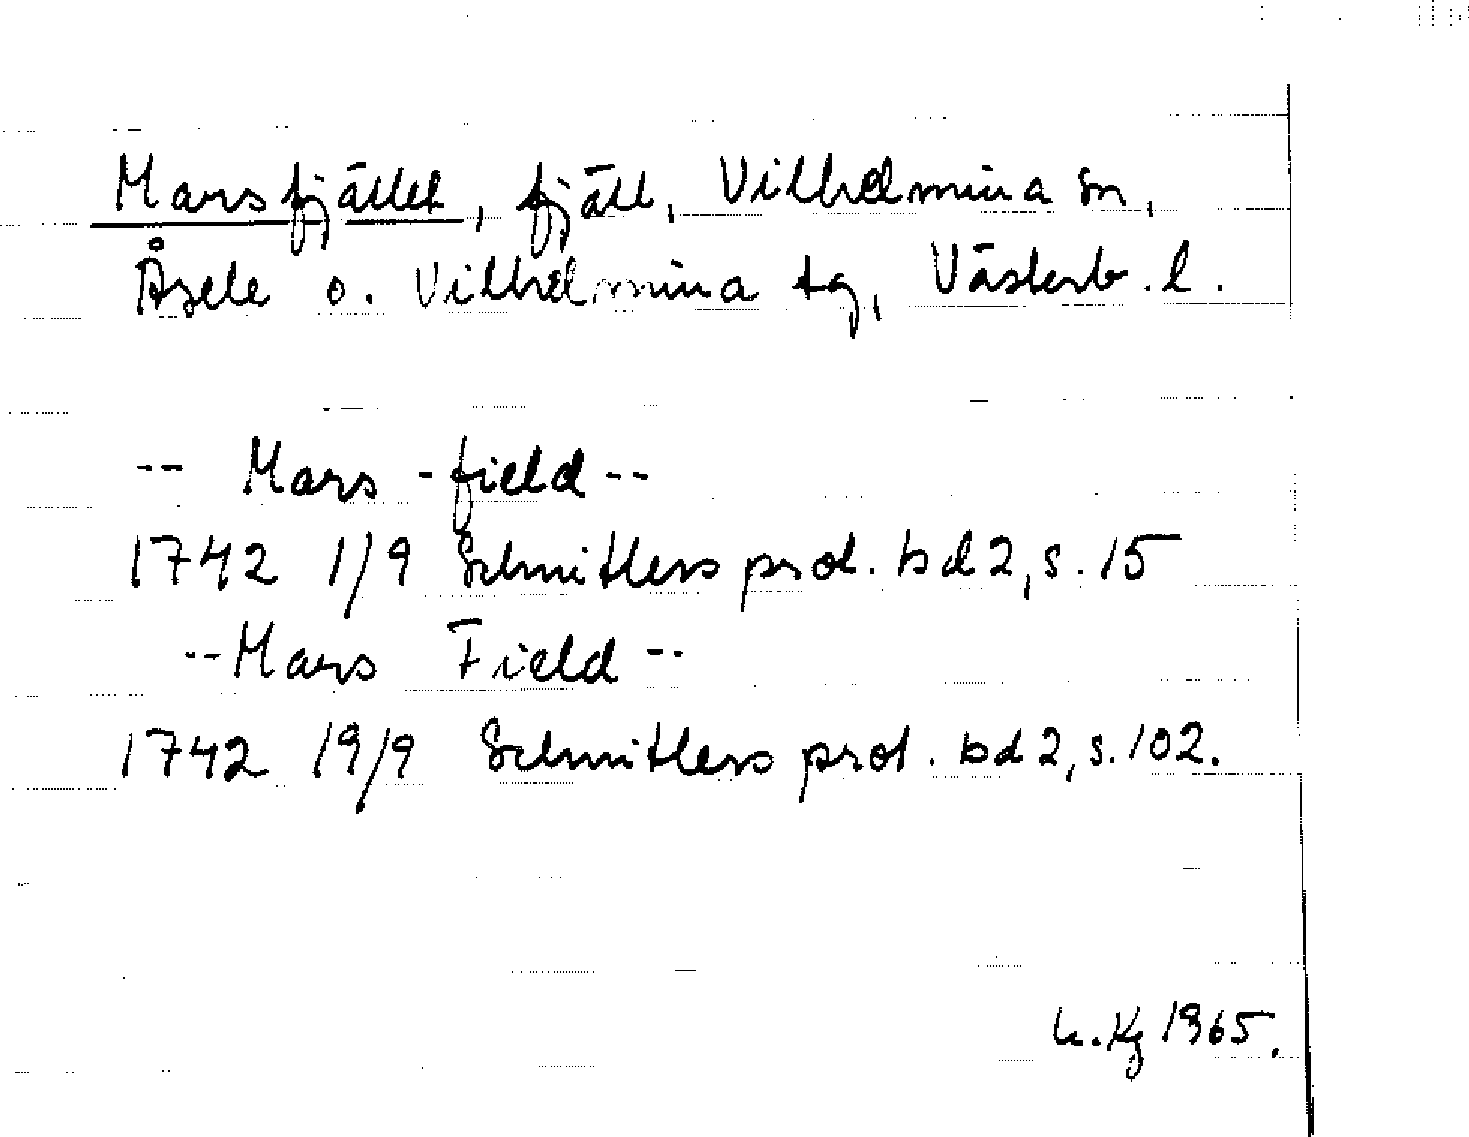 Marsfjället, fjäll, Vilhelmina sn,
Åsele o. Vilhelmina tg, Västerb. l.
-- Mars -field --
1742 1/9 Schnitlers prot. bd 2, s. 15
-- Mars Field --
1742 19/9 Schnitlers prot. bd 2, s. 102.
1965.